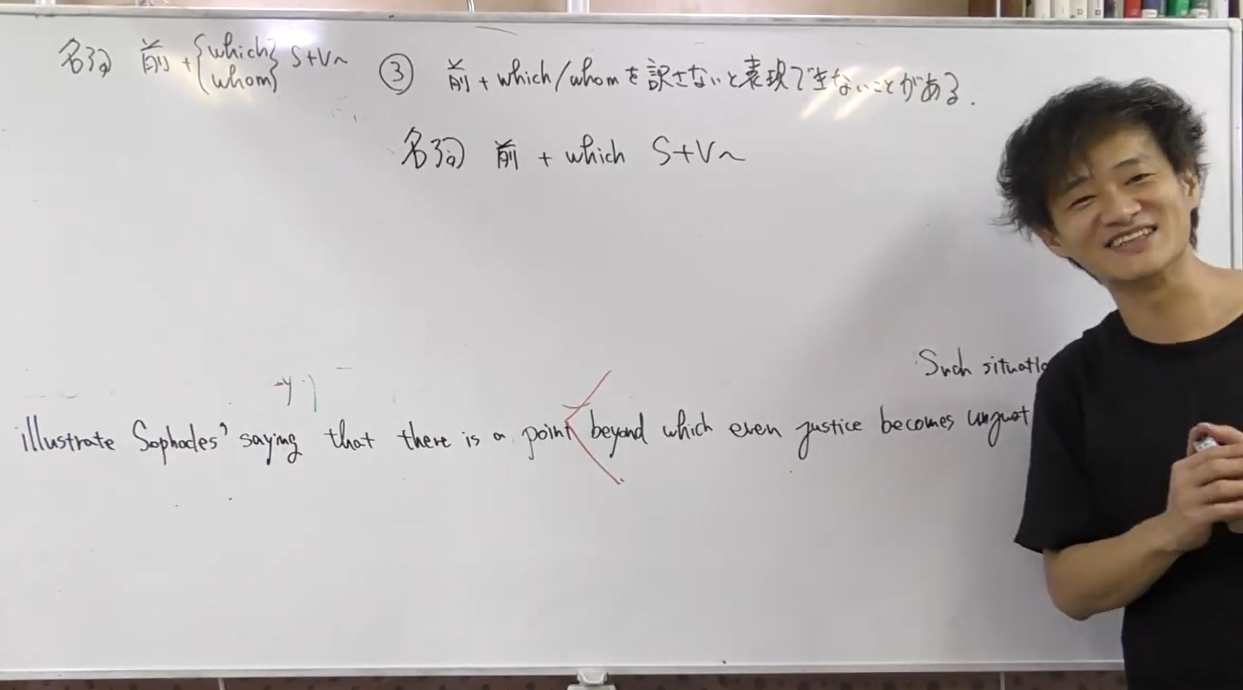 名詞 前 + {which whom} S+V~
③ 前 + which/whom を訳さないと表現できないことがある.
名詞 前 + which S+V~
Such situatio
illustrate Sophodes' saying that there is a point beyond which even justice becomes unjust